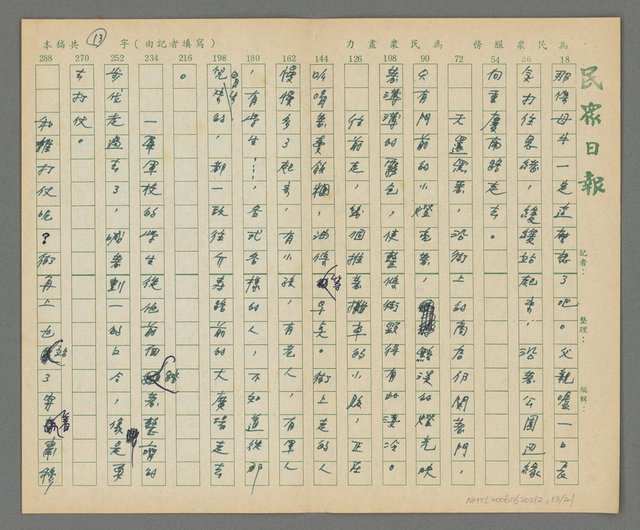 為民衆服務
為民衆盡力
本稿共 字（由記者填寫）
13
民衆日報
記者：
整理：
編輯：
18 36 54 72 90 108 126 144 162 180 198 216 234 252 270 288
那條母牛一定這麼 了吧。父親噓一口長
打 思緒，緩緩站起來，沿著公園邊緣
向重慶南路走去。
天還黑著，沿街上的商店們關著門，
只有門前的小燈亮著，黯淡的燈光映
著薄薄的霧色，使整條街顯得有些淒冷。
往前走，幾個推著攤車的小販，正在
吆喝著賣飯糰、油條等早點。街上走的人
慢慢多了起來，有小孩，有老人，有軍人
，有學生……各式各樣的人，不知道從那
兒冒出來的，都一致往介壽路前的大廣場走去
。
一 軍校的學生從他前面踏著整齊的
步伐走過去了，喊著劃一的口令，像是要
去打仗。
和誰打仗呢？街 上也站了穿著肅穆
NMTL20060620012, 13/21